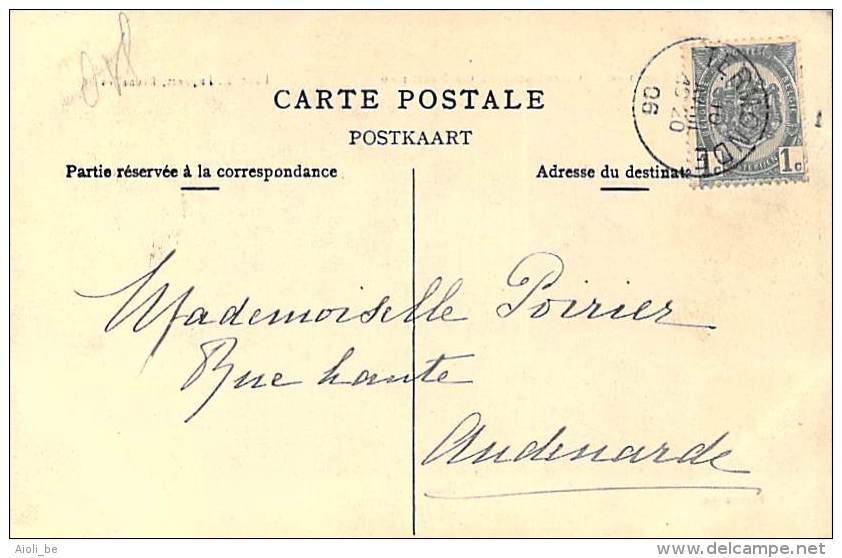 CARTE POSTALE
POSTKAART
Partie réservée à la correspondance
Adresse du destinat
TERMONDE
06
1c 1c
Mademoiselle Poirier
Rue haute
Audenarde
Aioli_be
delcampe.net